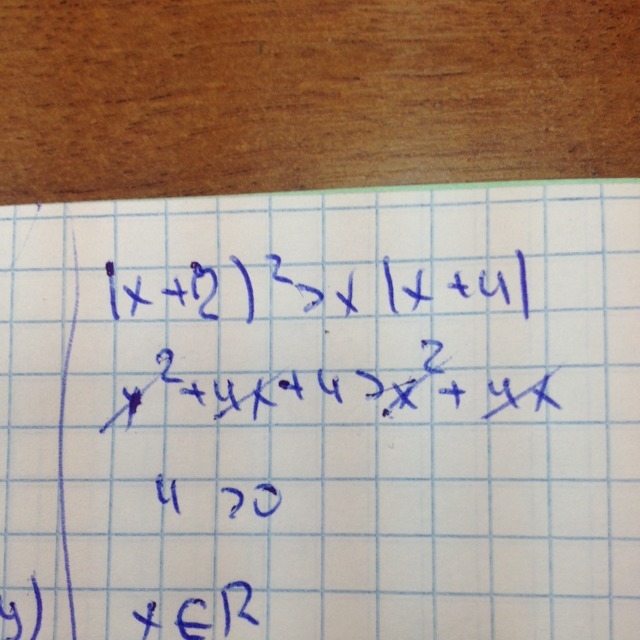 (x+2)²>x(x+4)
x²+4x+4>x²+4x
4>0
y)
x∈R